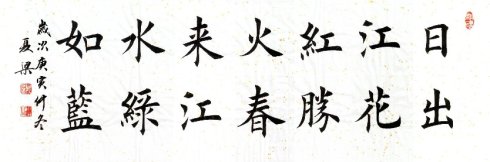 日出
江花
紅勝
火春
来江
水綠
如藍
歲次庚寅仲冬
夏梁